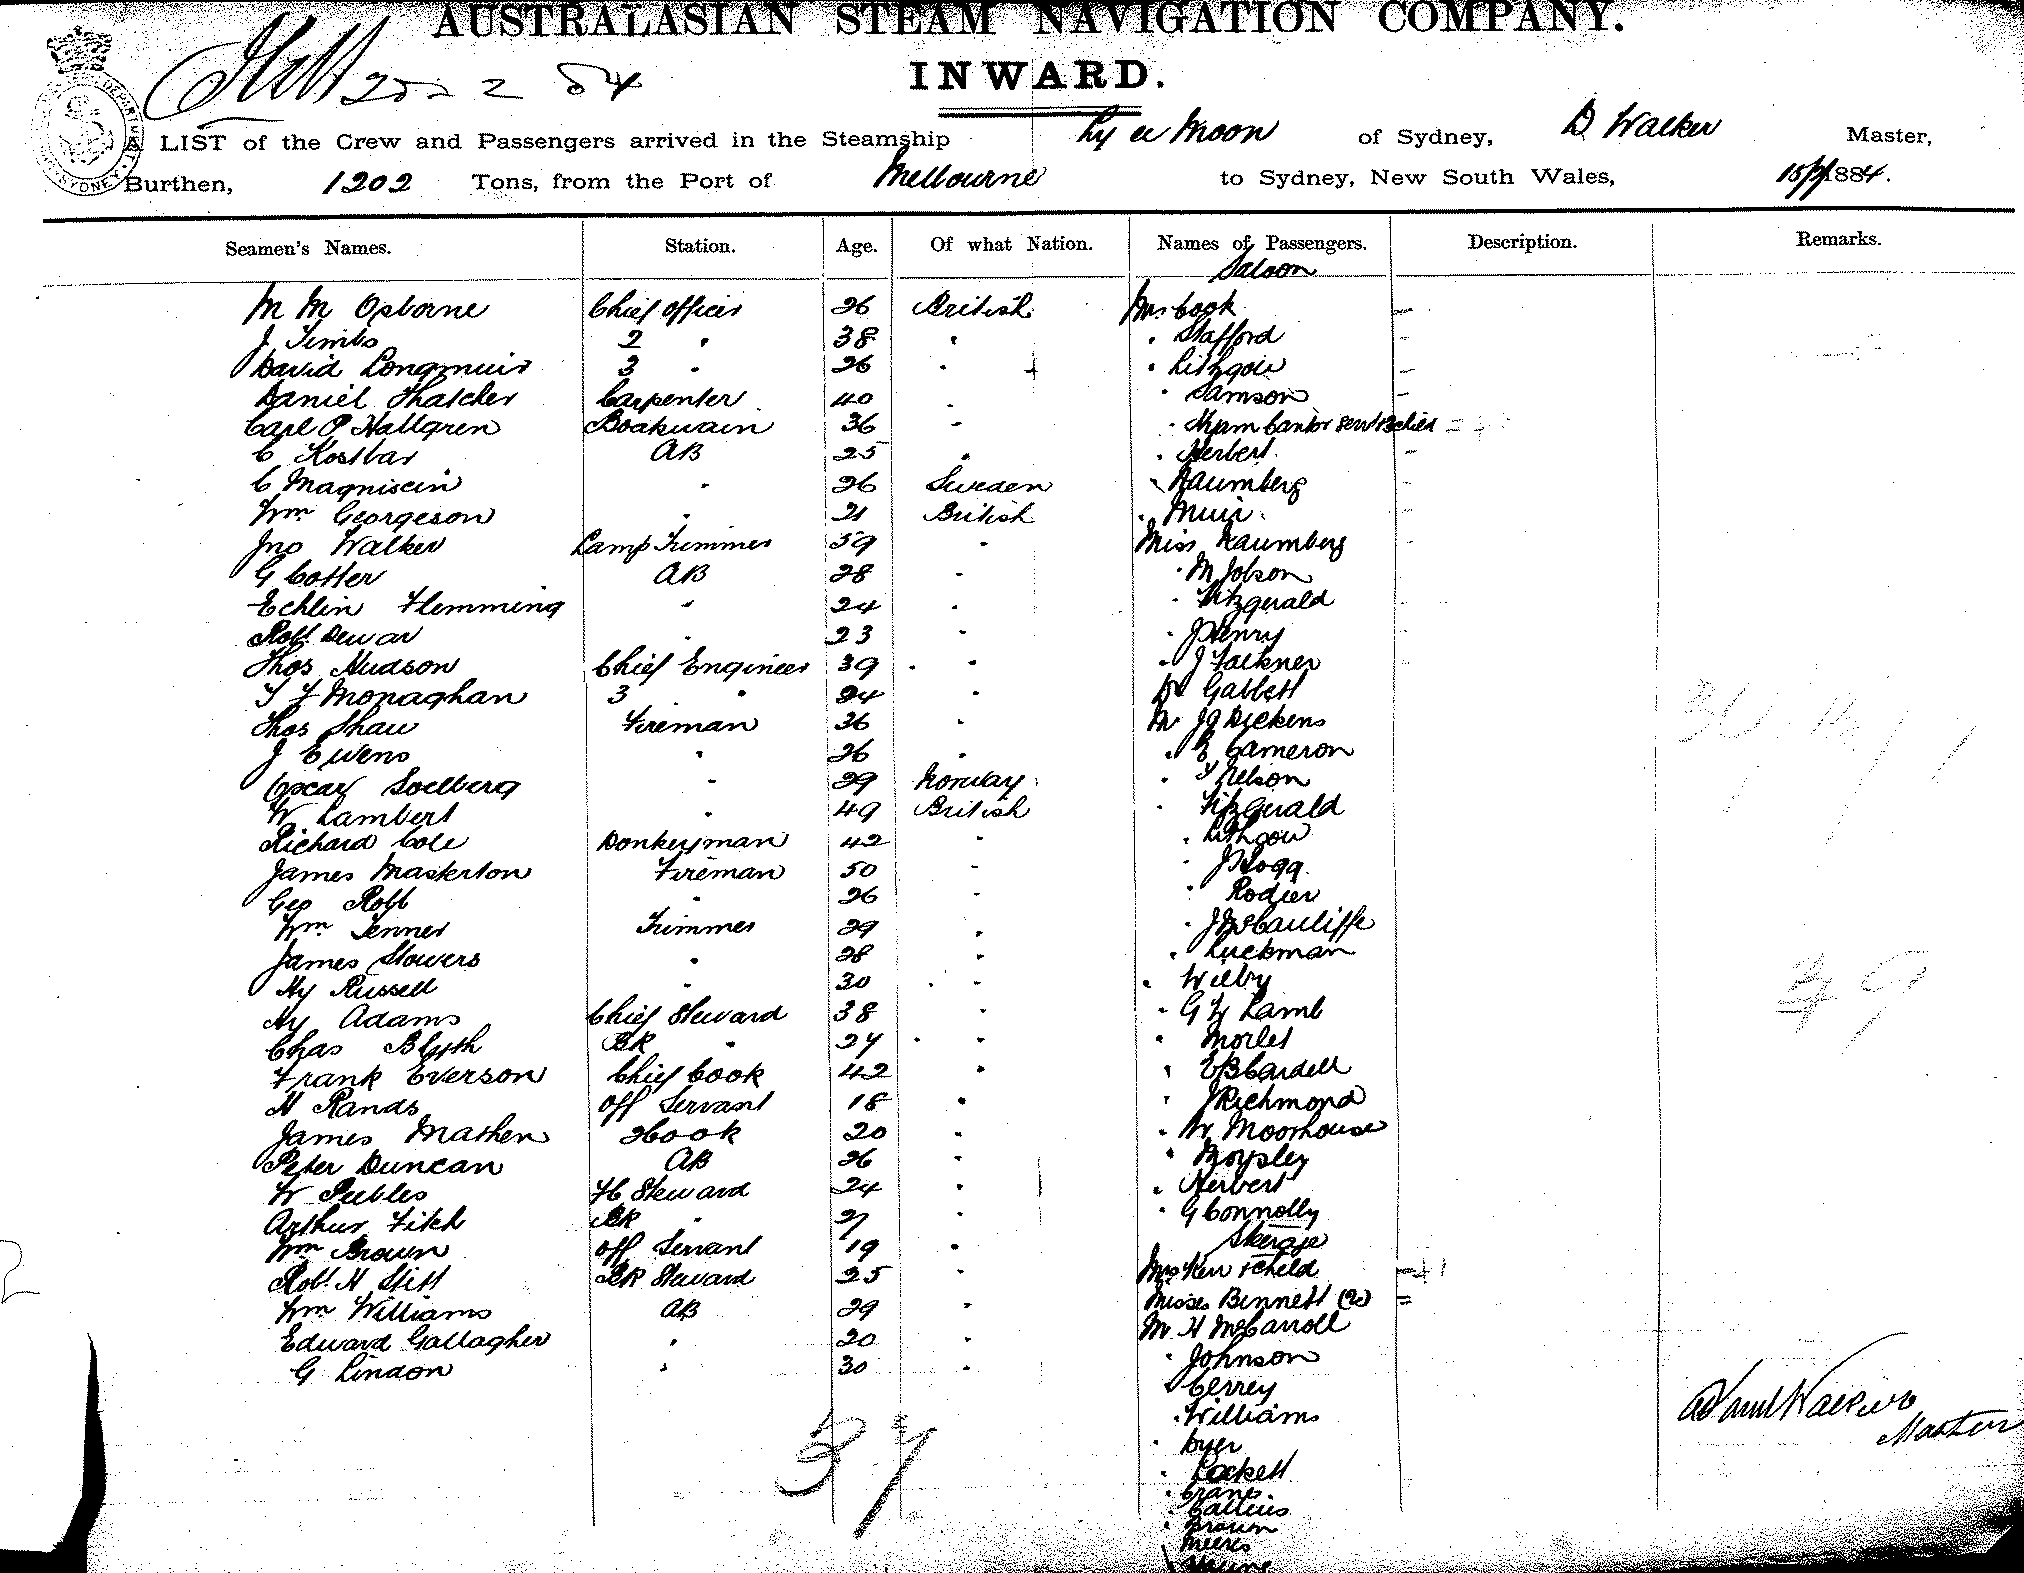 AUSTRALASIAN STEAM NAVIGATION COMPANY.
25 2 84
INWARD.
A LIST of the Crew and Passengers arrived in the Steamship Ly ee Moon of Sydney, D Walker Master,
Burthen, 1202 Tons, from the Port of Melbourne to Sydney, New South Wales, 1884.
Seamen's Names. Station. Age. Of what Nation. Names of Passengers. Description. Remarks.
Saloon
M M Osborne Chief Officer 26 British Mrs Cook
J Timbs 2 " 38 " " Stafford
David Longmuir 3 " 26 " " Lithgow
Daniel Thatcher Carpenter 40 " " Samson
Carl P Hallgren Boatswain 36 "
C Kostbar AB 25 " " Herbert
C Magnisein " 26 Sweden " Naumberg
Wm Georgeson " 21 British " Muir
Jno Walker Lamp Trimmer 59 " Miss Naumberg
G Cotter AB 28 " " M Jobson
Echlin Flemming " 24 " " Fitzgerald
Robt Dewar " 23 " " J Henry
Thos Hudson Chief Engineer 39 " " J Falkner
T F Monaghan 3 " 24 " Dr Gabbett
Thos Shaw Fireman 36 " Mr J G Dickens
J Ewens " 26 " " E Cameron
Oscar Soelberg " 29 Norway " T Nelson
W Lambert " 49 British " Fitzgerald
Richard Cole Donkeyman 42 " " Lithgow
James Masterton Fireman 50 " " J Hogg
Geo Robb " 26 " " Rodier
Wm Jenner Trimmer 29 " " J McCauliffe
James Stowers " 28 " " Luckman
Hy Russell " 30 " " Wilby
Hy Adams Chief Steward 38 " " G F Lamb
Chas Blyth BK " 24 " " Morlet
Frank Everson Chief Cook 42 " " E B Cardell
H Rands Off Servant 18 " " J Richmond
James Mathen 2 Cook 20 " " W Moorhouse
Peter Duncan AB 26 " "
W Peebles FC Steward 24 " " Herbert
Arthur Fitch BK " 27 " " G Connolly
Steerage
Wm Brown Off Servant 19 "
Robt H Stitt BK Steward 25 " Mrs Kerr & Child
Wm Williams AB 29 " Misses Bennett (2)
Edward Gallagher " 20 " Mr H McCarroll
G Lindon " 30 " " Johnson
" Cerrey
" Williams
" Dyer
" Lockett
" Crane
" Brown
" Meeres
37
49
Danl Walker
Master